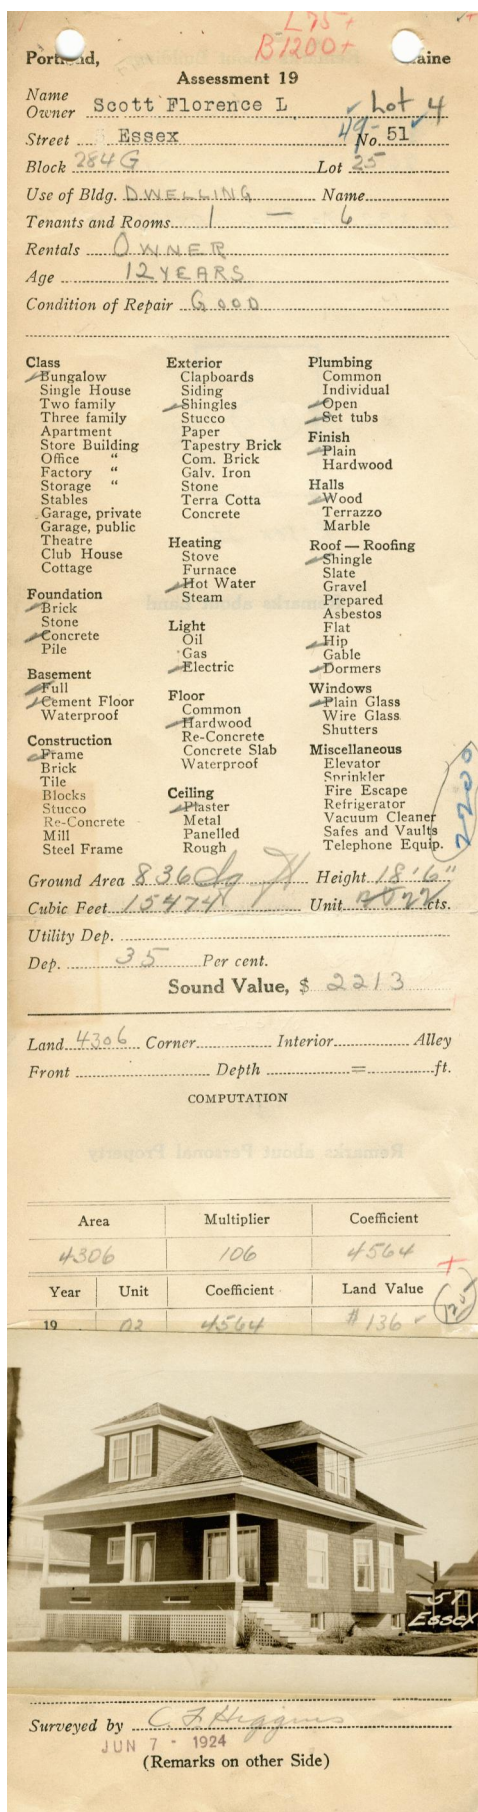 L 75 +
B 1200 +
Portland, Maine
Assessment 19
Name
Owner Scott Florence L Lot 4
Street Essex 49- No. 51
Block 284 G Lot 25
Use of Bldg. DWELLING Name
Tenants and Rooms 1 — 6
Rentals OWNER
Age 12 YEARS
Condition of Repair GOOD
Class
Bungalow
Single House
Two family
Three family
Apartment
Store Building
Office "
Factory "
Storage "
Stables
Garage, private
Garage, public
Theatre
Club House
Cottage
Foundation
Brick
Stone
Concrete
Pile
Basement
Full
Cement Floor
Waterproof
Construction
Frame
Brick
Tile
Blocks
Stucco
Re-Concrete
Mill
Steel Frame
Exterior
Clapboards
Siding
Shingles
Stucco
Paper
Tapestry Brick
Com. Brick
Galv. Iron
Stone
Terra Cotta
Concrete
Heating
Stove
Furnace
Hot Water
Steam
Light
Oil
Gas
Electric
Floor
Common
Hardwood
Re-Concrete
Concrete Slab
Waterproof
Ceiling
Plaster
Metal
Panelled
Rough
Plumbing
Common
Individual
Open
Set tubs
Finish
Plain
Hardwood
Halls
Wood
Terrazzo
Marble
Roof — Roofing
Shingle
Slate
Gravel
Prepared
Asbestos
Flat
Hip
Gable
Dormers
Windows
Plain Glass
Wire Glass
Shutters
Miscellaneous
Elevator
Sprinkler
Fire Escape
Refrigerator
Vacuum Cleaner
Safes and Vaults
Telephone Equip.
2200
Ground Area 836 Sq ft Height 18'6"
Cubic Feet 15474 Unit 22 cts.
Utility Dep.
Dep. 35 Per cent.
Sound Value, $ 2213
Land 4306 Corner Interior Alley
Front Depth = ft.
COMPUTATION
Remarks about Personal Property
Area Multiplier Coefficient
4306 106 4564
Year Unit Coefficient Land Value
19 02 4564 $ 136
57
ESSEX
Surveyed by C. F. Higgins
JUN 7 - 1924
(Remarks on other Side)